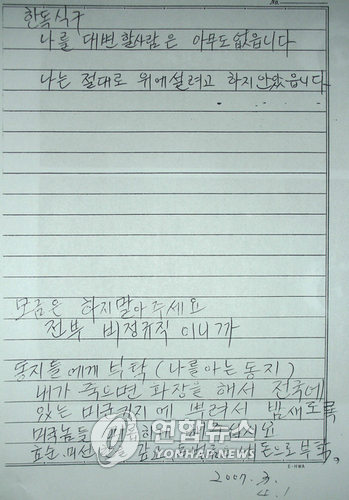 No.
한독식구
나를 대변할사람은 아무도 없읍니다
나는 절대로 위에설려고 하지안았읍니다
모금은 하지말아주세요
전부 비정규직 이니까
동지들에게 부탁 (나를아는 동지)
내가 죽으면 화장을 해서 전국에
있는 미군기지에 뿌려서 밤새도록
미국놈들
효순.미선 돈으로 부탁
연합뉴스
YONHAPNEWS
2007.
4.1